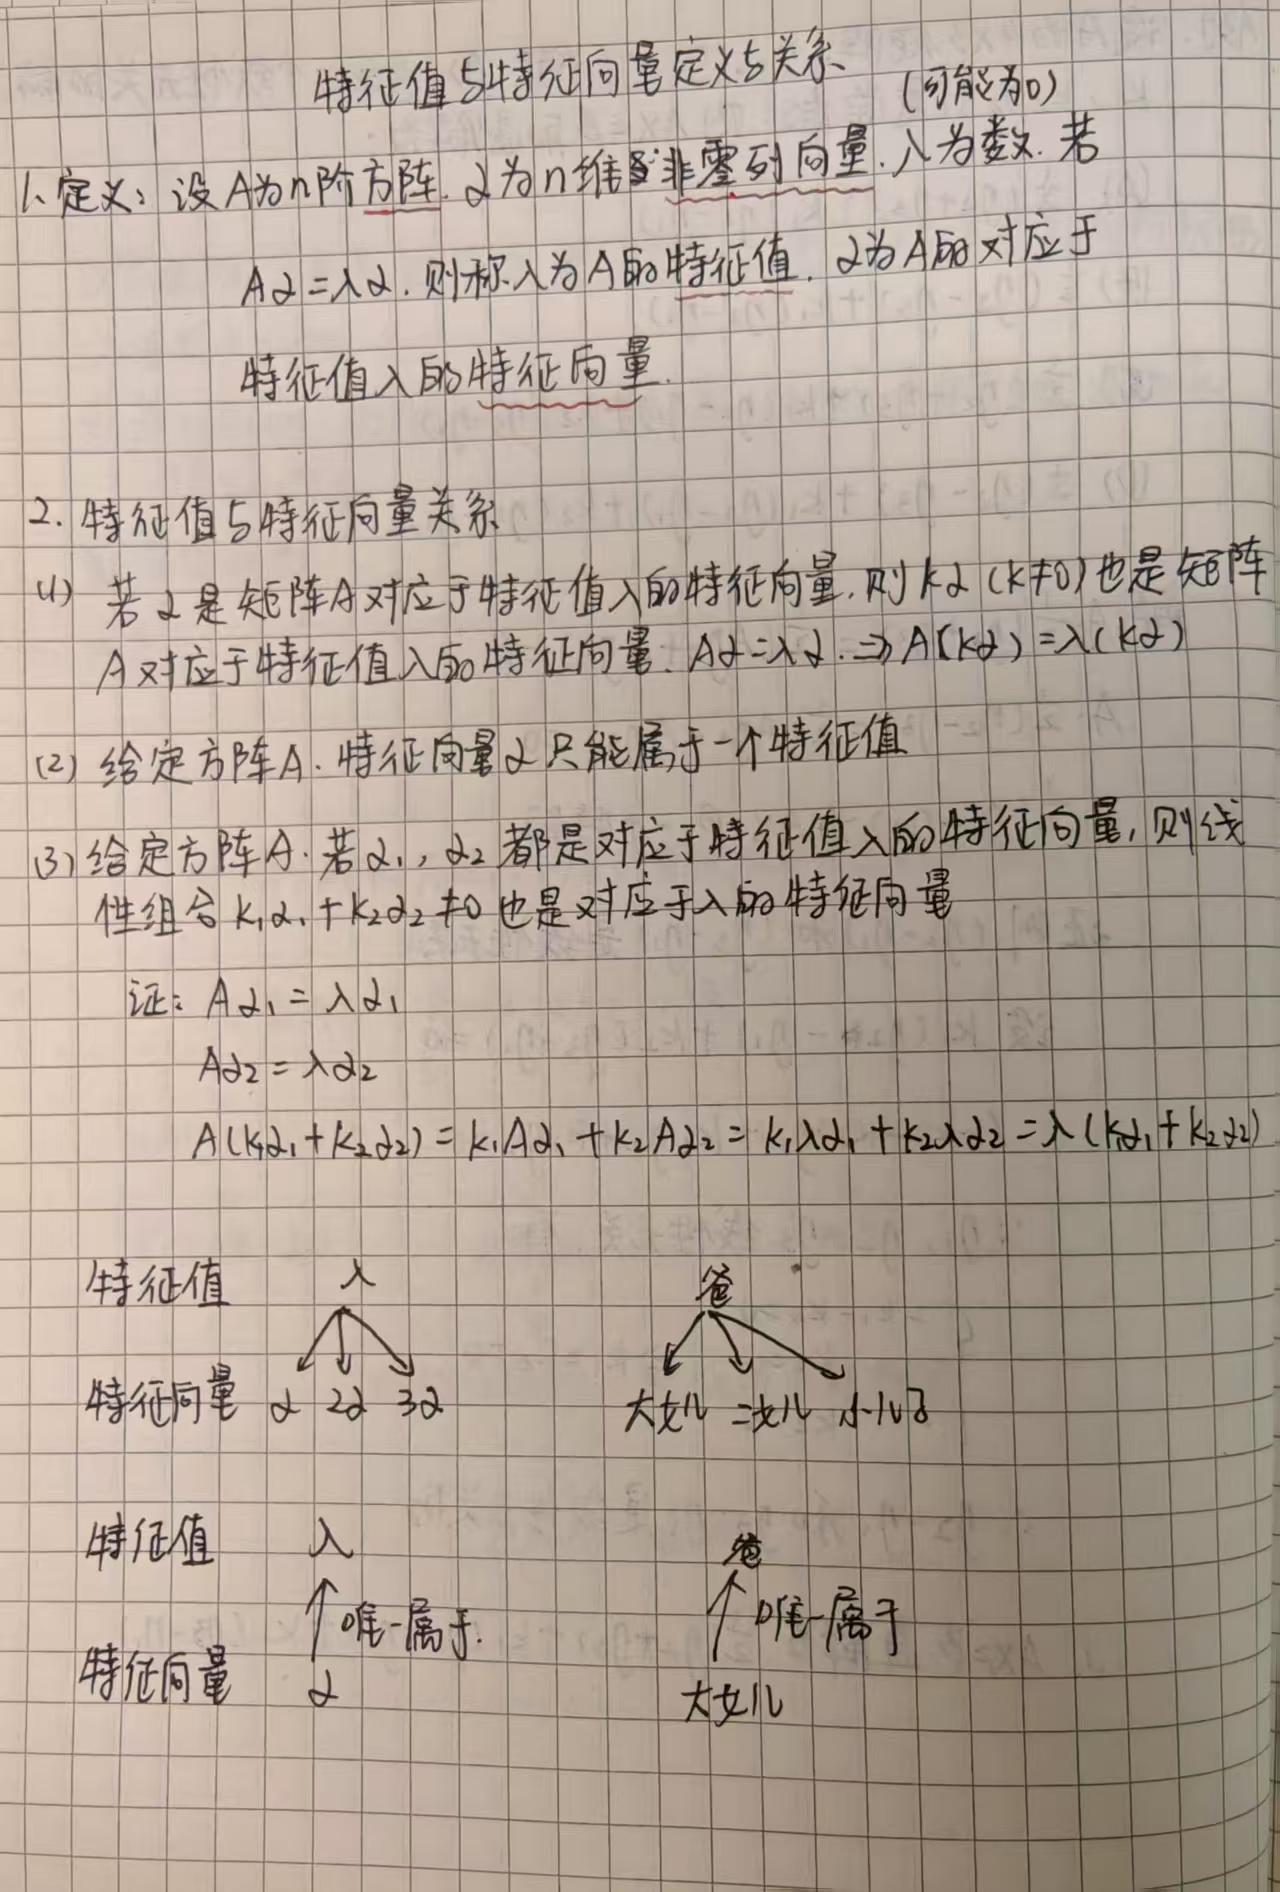 特征值与特征向量定义与关系
(可能为0)
1、定义：设A为n阶方阵．α为n维非零列向量．λ为数．若
Aα=λα．则称λ为A的特征值．α为A的对应于
特征值λ的特征向量．
2．特征值与特征向量关系
(1) 若α是矩阵A对应于特征值λ的特征向量．则kα(k≠0)也是矩阵
A对应于特征值λ的特征向量．Aα=λα．⇒A(kα)=λ(kα)
(2) 给定方阵A．特征向量α只能属于一个特征值
(3) 给定方阵A．若α₁，α₂都是对应于特征值λ的特征向量，则线
性组合k₁α₁+k₂α₂≠0也是对应于λ的特征向量
证：Aα₁=λα₁
Aα₂=λα₂
A(k₁α₁+k₂α₂)=k₁Aα₁+k₂Aα₂=k₁λα₁+k₂λα₂=λ(k₁α₁+k₂α₂)
特征值 λ 爸
特征向量 α 2α 3α 大女儿 二女儿 小儿子
特征值 λ 爸
唯一属于． 唯一属于
特征向量 α 大女儿